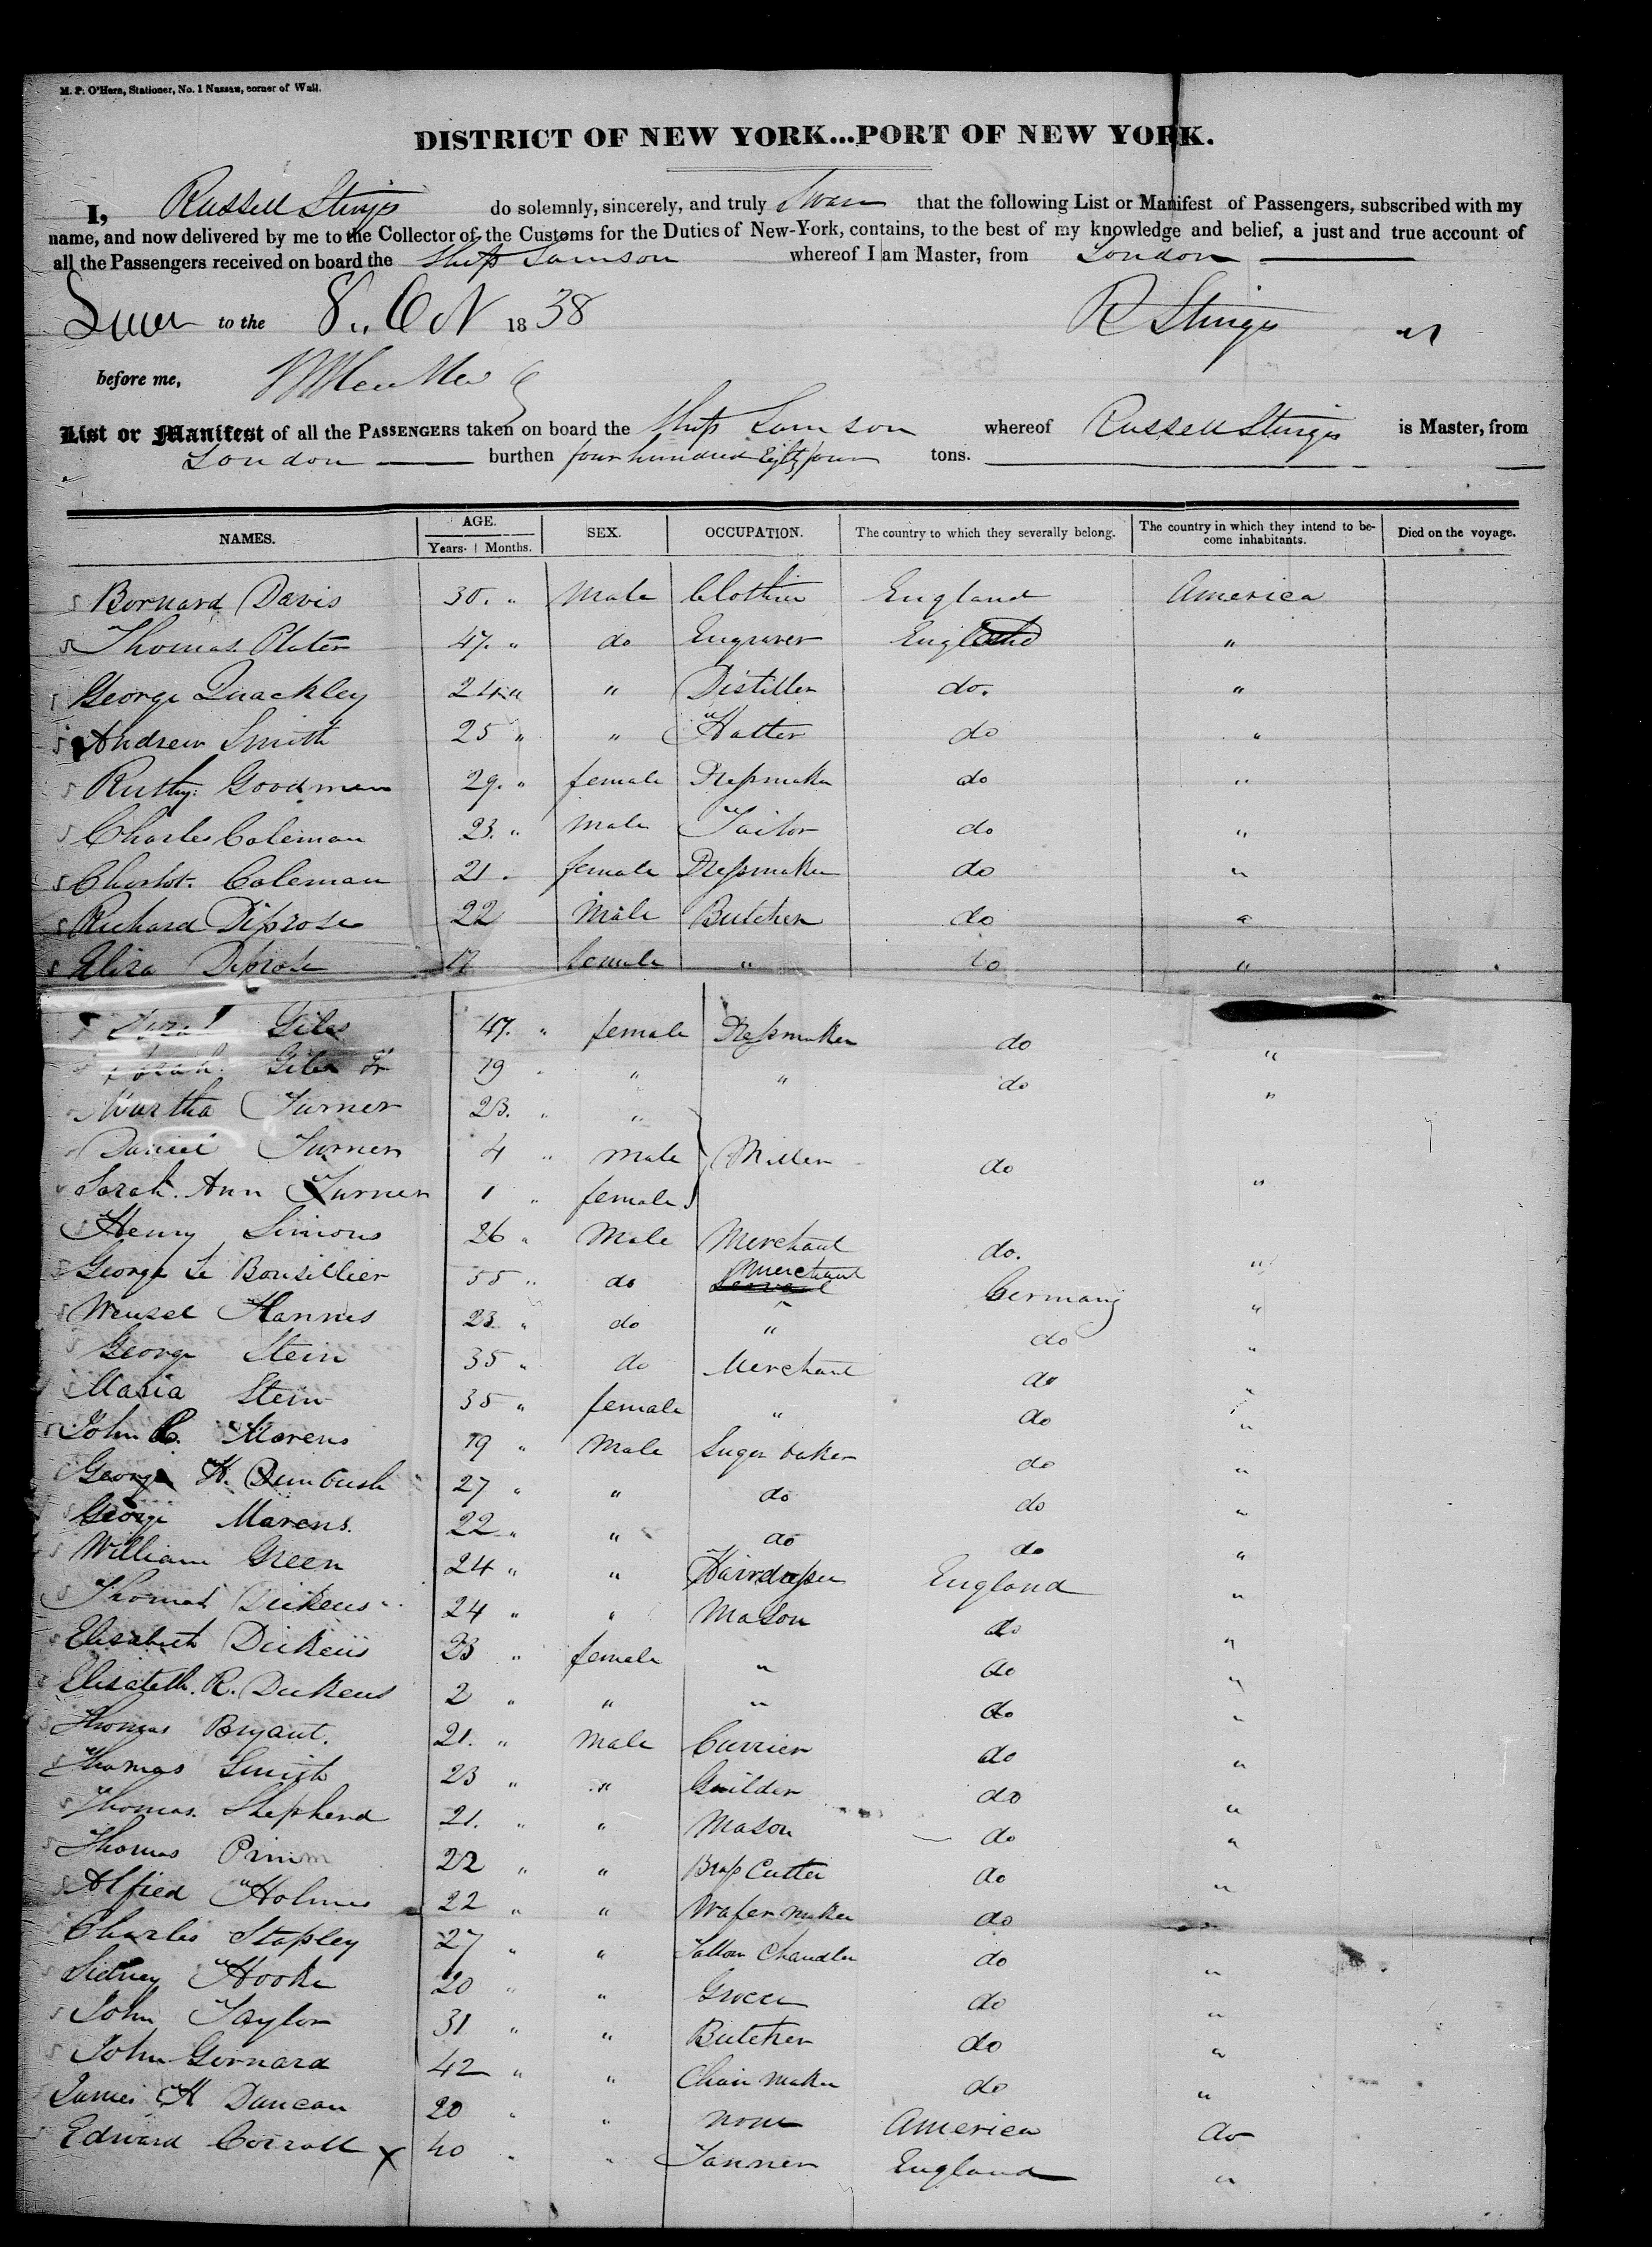 M. P. O'Hern, Stationer, No. 1 Nassau, corner of Wall.
DISTRICT OF NEW YORK...PORT OF NEW YORK.
I, Russell Sturgis do solemnly, sincerely, and truly Swear that the following List or Manifest of Passengers, subscribed with my
name, and now delivered by me to the Collector of the Customs for the Duties of New-York, contains, to the best of my knowledge and belief, a just and true account of
all the Passengers received on board the Ship Samson whereof I am Master, from London
Sworn to the 8" Oct 1838 R Sturgis
before me,
List or Manifest of all the PASSENGERS taken on board the Ship Samson whereof Russell Sturgis is Master, from
London burthen four hundred Eighty four tons.
NAMES. AGE. Years. Months. SEX. OCCUPATION. The country to which they severally belong. The country in which they intend to become inhabitants. Died on the voyage.
Bornard Davis 30. " Male Clothier England America
Thomas Plater 47. " do Engraver England "
George Quackley 24 " " Distiller do. "
Andrew Smith 25 " " Hatter do "
Ruthy. Goodman 29. " female Dressmaker do "
Charles Coleman 23. " Male Tailor do "
Charlot. Coleman 21. female Dressmaker do "
Richard Diprose 22 Male Butcher do "
Eliza Diprose 17 female " do "
Sarah Giles 47. " female Dressmaker do "
Sarah Giles Jr 19 " " " do "
Martha Turner 23. " "
Daniel Turner 4 " Male Miller do "
Sarah. Ann Turner 1 " female
Henry Simons 26 " Male Merchant do. "
George Le Boutillier 55 " do Merchant Germany "
Wensel Hannis 23 " do " do "
George Stein 35 " do Merchant do "
Maria Stein 35 " female " do "
John C. Marens 19 " Male Sugar baker do "
George H. Dumbush 27 " " do do "
George Marens. 22 " " do do "
William Green 24 " " Hairdresser England "
Thomas Dickens 24 " " Mason do "
Elisabeth Dickens 23 " female " do "
Elisabeth. R. Dickens 2 " " " do "
Thomas Bryant. 21. " Male Currier do "
Thomas Smith 23 " " Guilder do "
Thomas. Shepherd 21. " " Mason do "
Thomas Primm 22 " " Brass Cutter do "
Alfred Holmes 22 " " Wafer maker do "
Charles Stapley 27 " " Tallow Chandler do "
Sidney Hooke 20 " " Grocer do "
John Taylor 31 " " Butcher do "
John Gernard 42 " " Chair Maker do "
James H Duncan 20 " " none America do
Edward Corrall X 40 " " Tanner England "